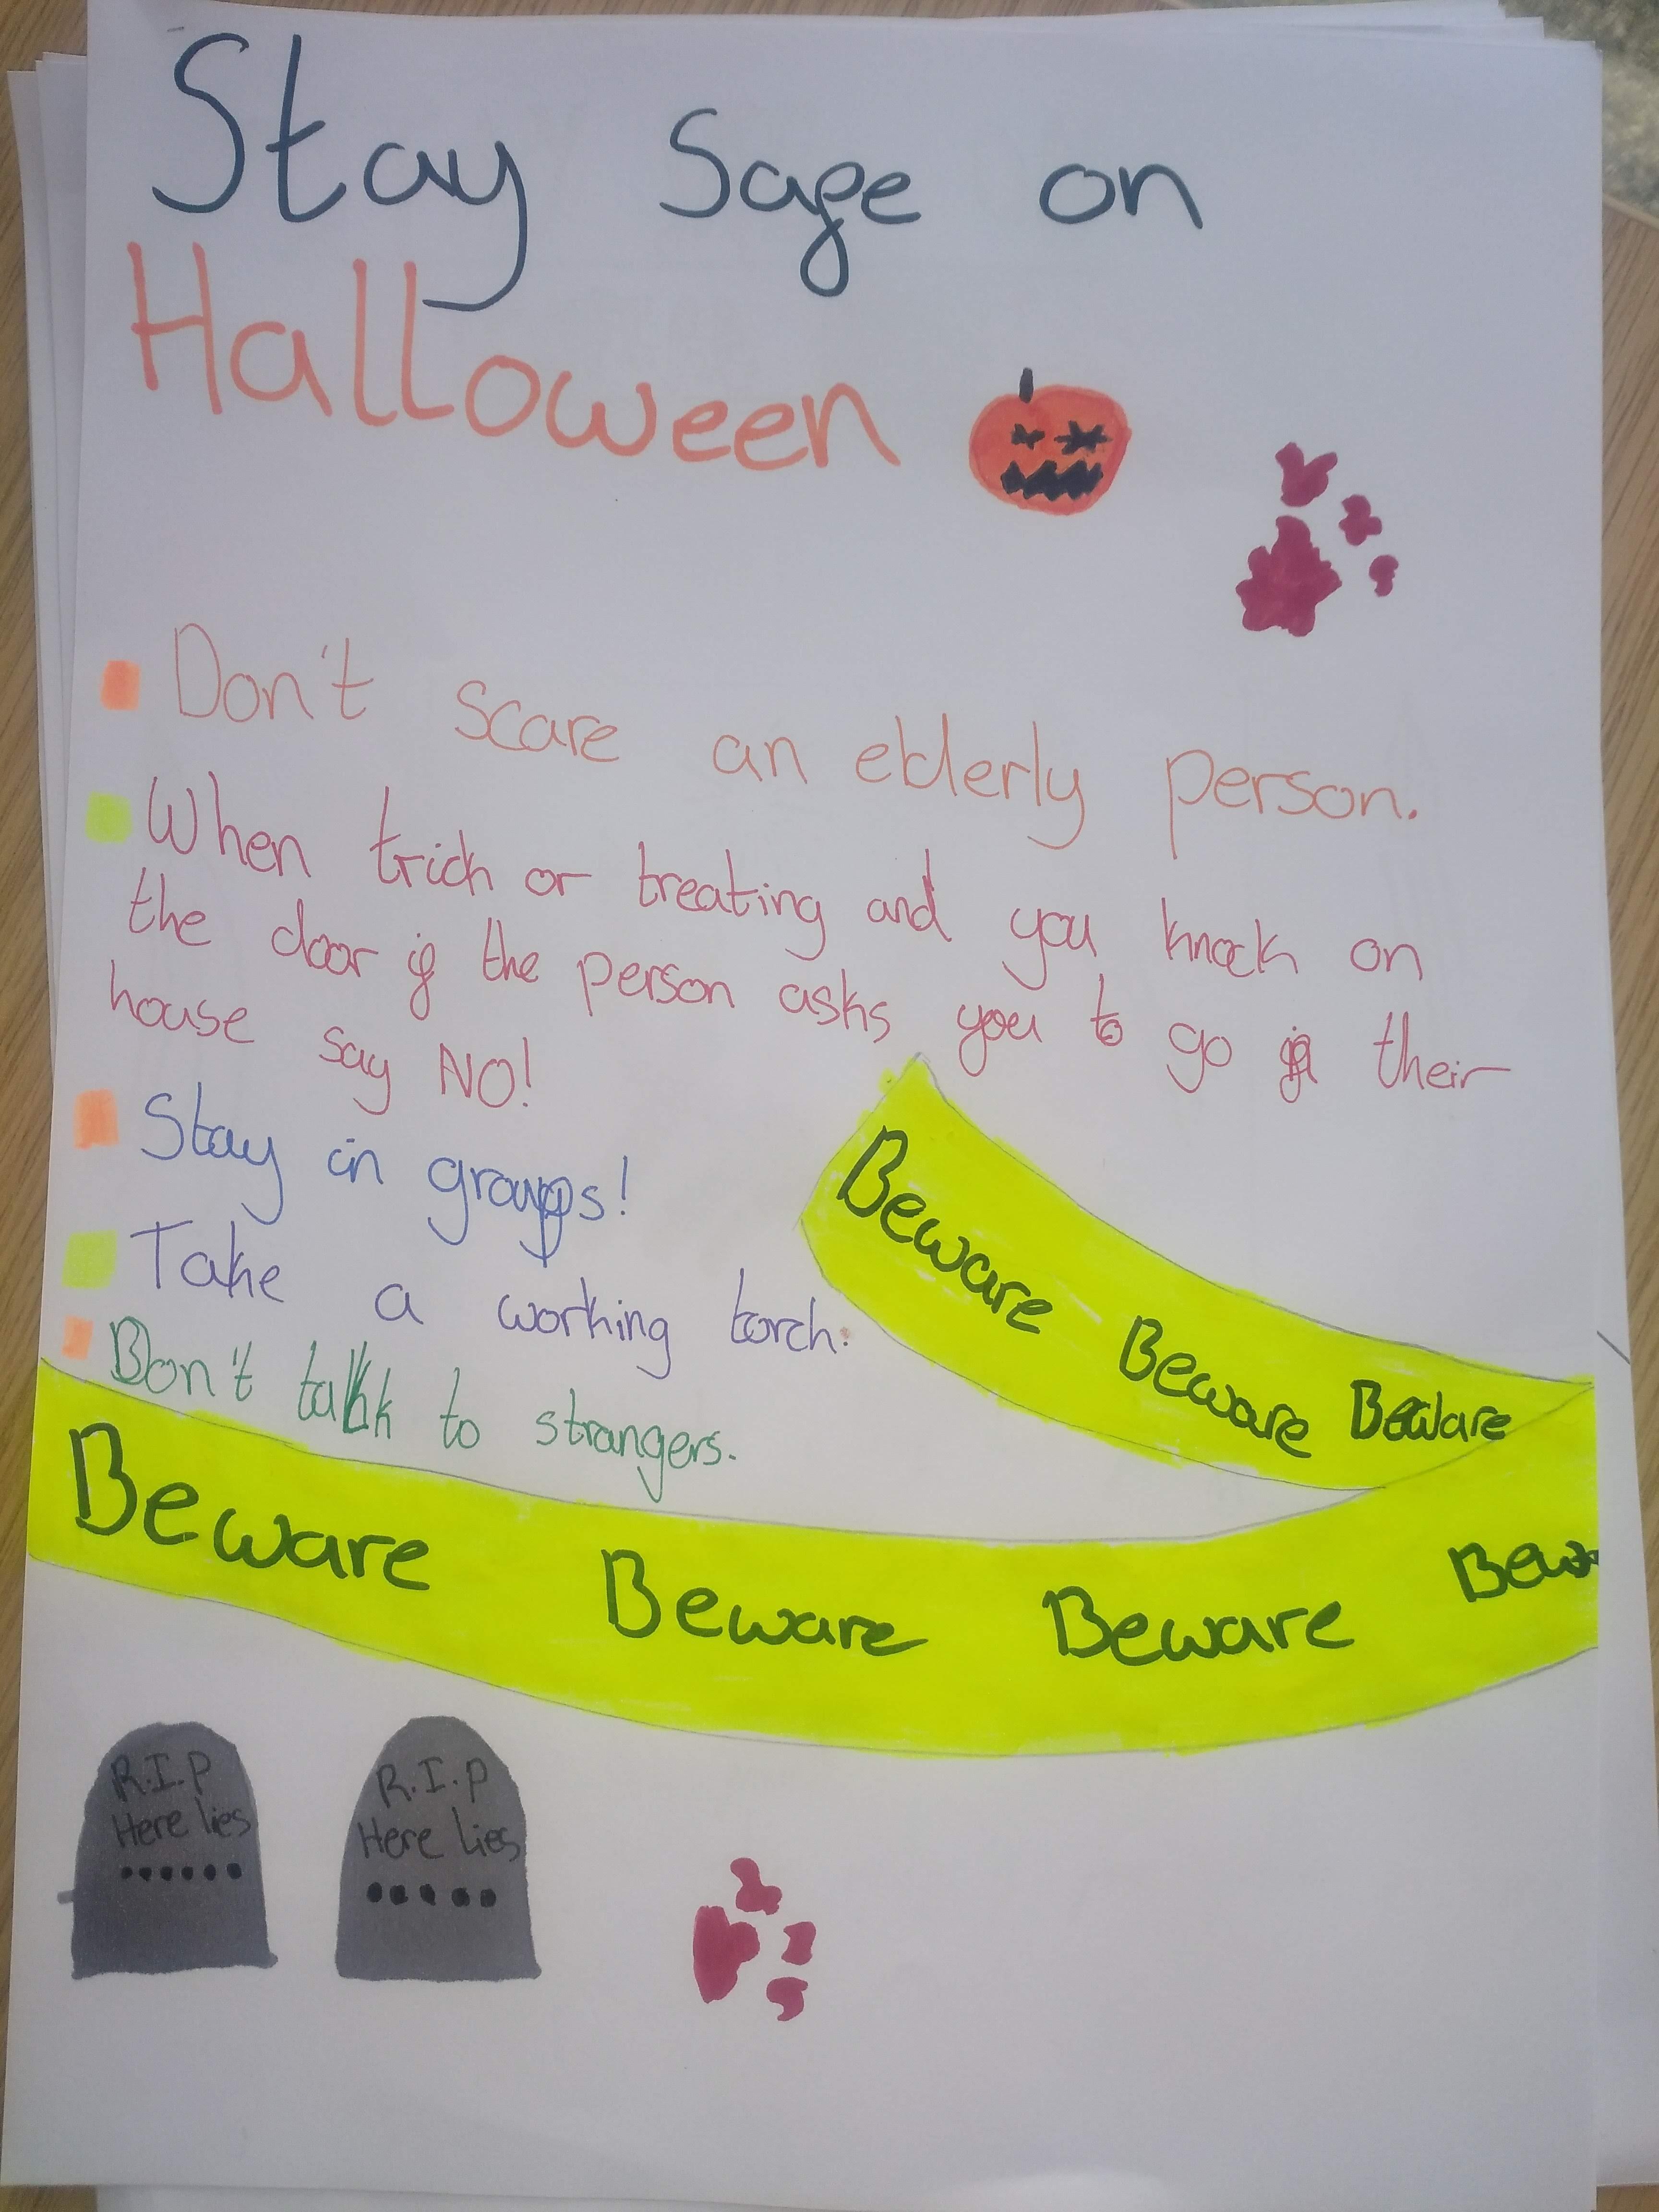 Stay Safe on
Halloween
Don't scare an elderly person.
When trick or treating and you knock on
the door if the person asks you to go in their
house say NO!
Stay in groups!
Take a working torch.
Don't talk to strangers.
Beware Beware Beware
Beware Beware Beware Bewa
R.I.P
Here lies
......
R.I.P
Here lies
.....